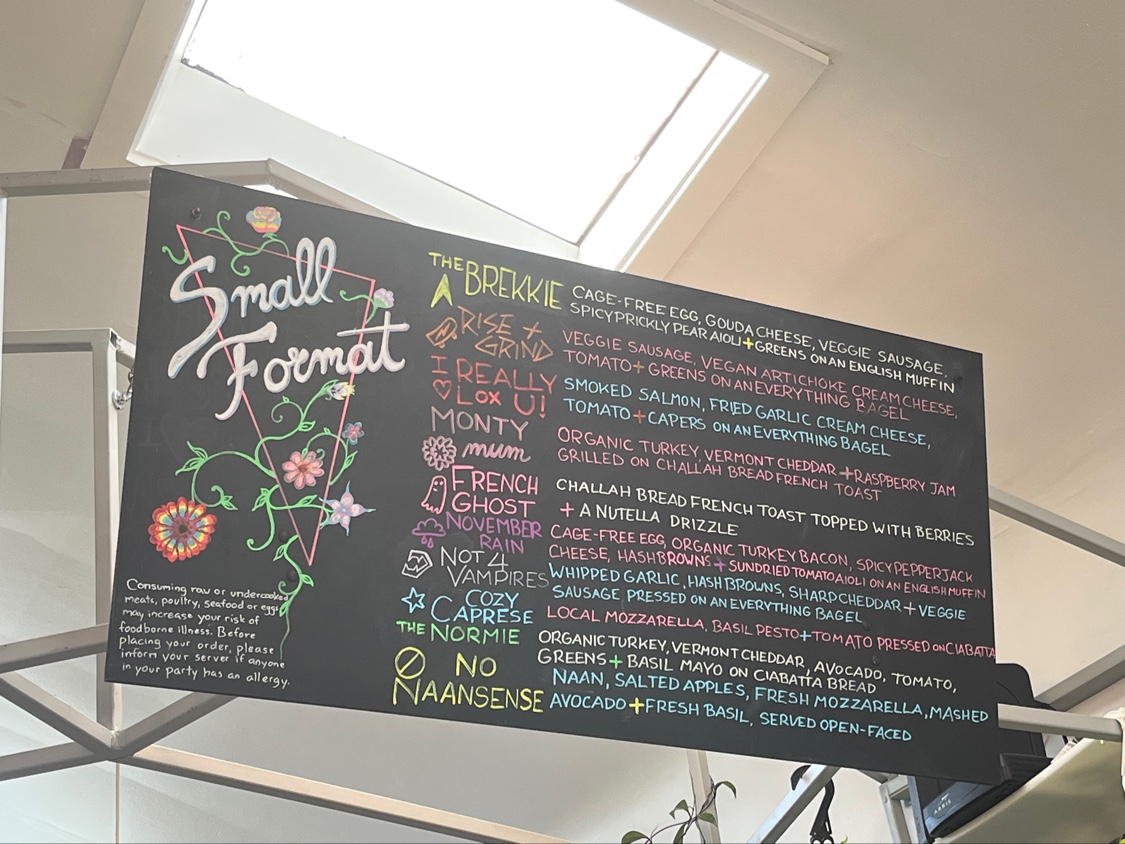 Small
Format
Consuming raw or undercooked
meats, poultry, seafood or eggs
may increase your risk of
foodborne illness. Before
placing your order, please
inform your server if anyone
in your party has an allergy.
THE BREKKIE
CAGE-FREE EGG, GOUDA CHEESE, VEGGIE SAUSAGE,
SPICY PRICKLY PEAR AIOLI + GREENS ON AN ENGLISH MUFFIN
RISE +
GRIND
VEGGIE SAUSAGE, VEGAN ARTICHOKE CREAM CHEESE,
TOMATO + GREENS ON AN EVERYTHING BAGEL
I REALLY
LOX U!
SMOKED SALMON, FRIED GARLIC CREAM CHEESE,
TOMATO + CAPERS ON AN EVERYTHING BAGEL
MONTY
mum
ORGANIC TURKEY, VERMONT CHEDDAR + RASPBERRY JAM
GRILLED ON CHALLAH BREAD FRENCH TOAST
FRENCH
GHOST
CHALLAH BREAD FRENCH TOAST TOPPED WITH BERRIES
+ A NUTELLA DRIZZLE
NOVEMBER
RAIN
CAGE-FREE EGG, ORGANIC TURKEY BACON, SPICY PEPPERJACK
CHEESE, HASHBROWNS + SUNDRIED TOMATO AIOLI ON AN ENGLISH MUFFIN
NOT 4
VAMPIRES
WHIPPED GARLIC, HASH BROWNS, SHARP CHEDDAR + VEGGIE
SAUSAGE PRESSED ON AN EVERYTHING BAGEL
COZY
CAPRESE
LOCAL MOZZARELLA, BASIL PESTO + TOMATO PRESSED ON CIABATTA
THE NORMIE
ORGANIC TURKEY, VERMONT CHEDDAR, AVOCADO, TOMATO,
GREENS + BASIL MAYO ON CIABATTA BREAD
NO
NAANSENSE
NAAN, SALTED APPLES, FRESH MOZZARELLA, MASHED
AVOCADO + FRESH BASIL, SERVED OPEN-FACED